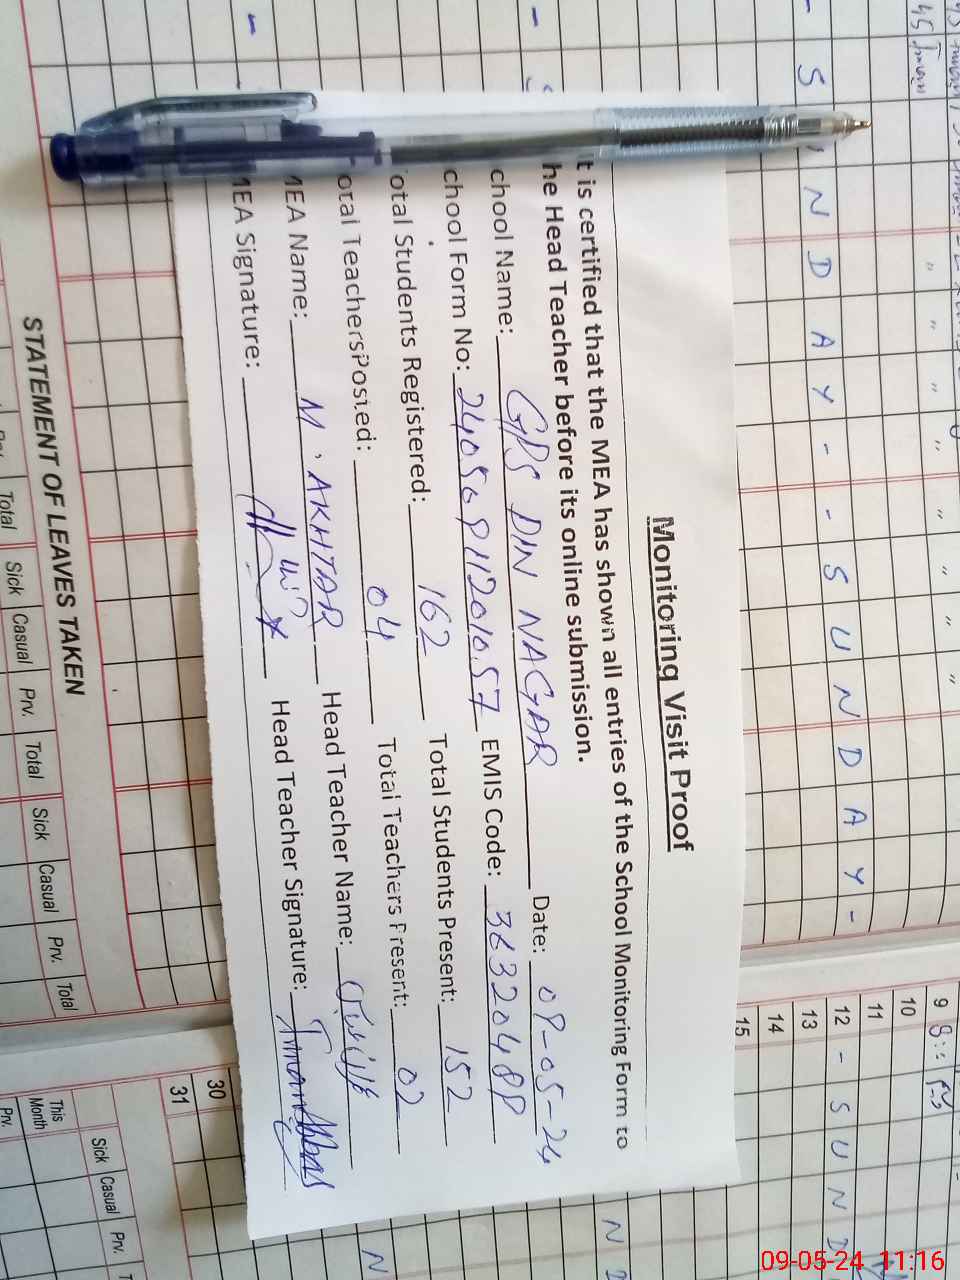 Monitoring Visit Proof
t is certified that the MEA has shown all entries of the School Monitoring Form to
he Head Teacher before its online submission.
chool Name: GPS DIN NAGAR Date: 09-05-24
chool Form No: 24050911201057 EMIS Code: 36320488
otal Students Registered: 162 Total Students Present: 152
otal Teachers Posted: 04 Total Teachers Present: 02
MEA Name: M. AKHTAR Head Teacher Name:
MEA Signature: Head Teacher Signature:
STATEMENT OF LEAVES TAKEN
Total Sick Casual Prv. Total Sick Casual Prv. Total
S N D A Y - - S U N D A Y -
9
10
11
12 - S U N D
13
14
15
30
31
This Month Sick Casual Prv.
Prv.
N
N
09-05-24 11:16